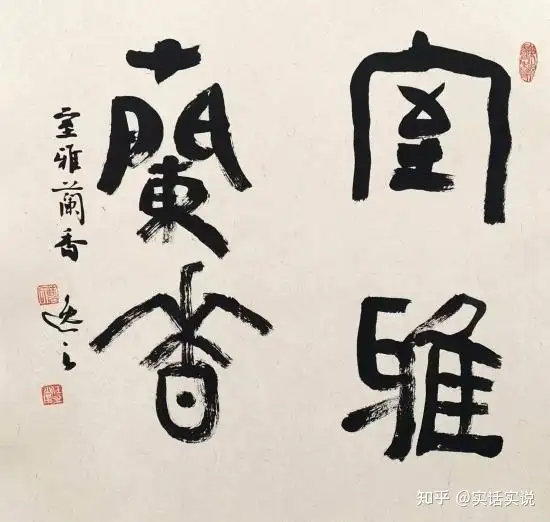 室雅
蘭香
室雅蘭香
逸之
知乎 @实话实说